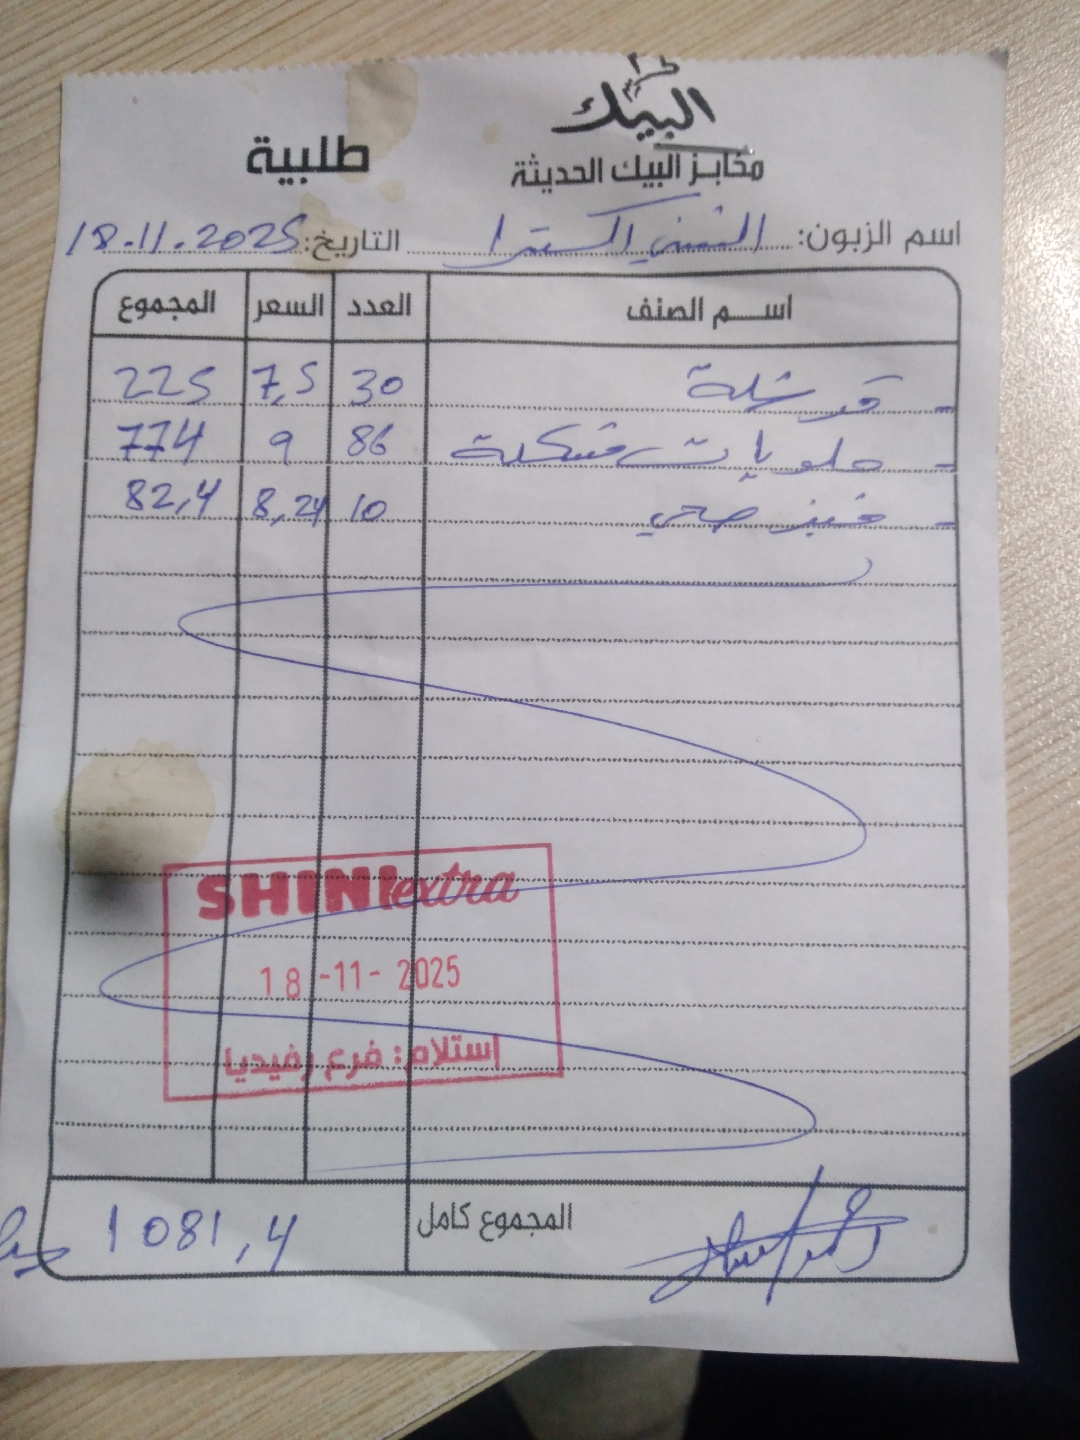 البيك
مخابز البيك الحديثة
طلبية
اسم الزبون: الشيني اكسترا التاريخ: 18.11.2025
اسم الصنف العدد السعر المجموع
- قرشلة 30 7,5 225
- حلويات مشكلة 86 9 774
- خبز صحي 10 8,24 82,4
SHINI extra
18-11-2025
إستلام: فرع رفيديا
المجموع كامل 1081,4